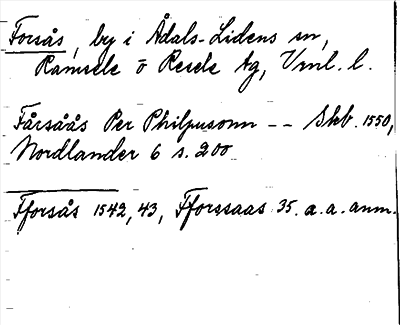 Forsås, by i Ådals-Lidens sn,
Ramsele o Resele tg, Vml. l.
Fårsåås Per Philpusonn -- Skb. 1550,
Nordlander 6 s. 200
Fforsås 1542, 43, Fforssaas 35. a. a. anm.